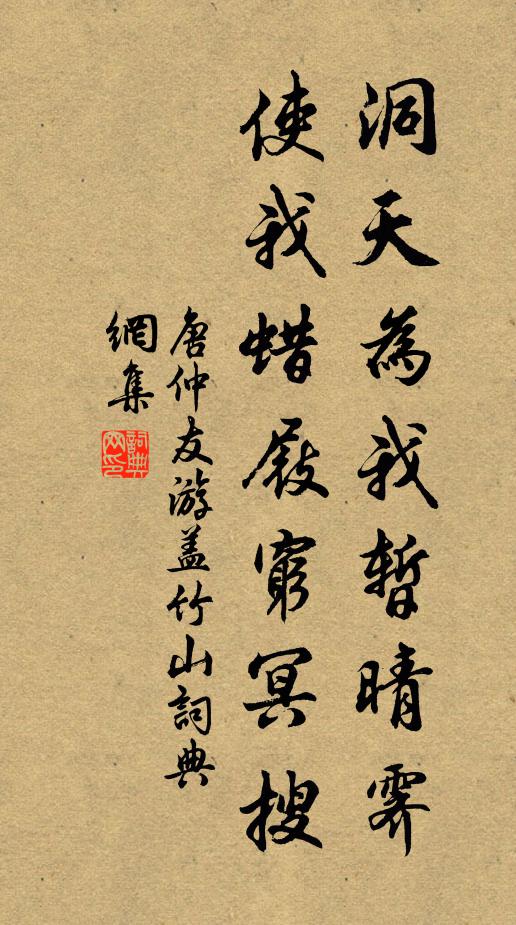 洞天為我暫晴霽
使我蜡屐窮冥搜
唐仲友游盖竹山詞典
網集
詞典
网印